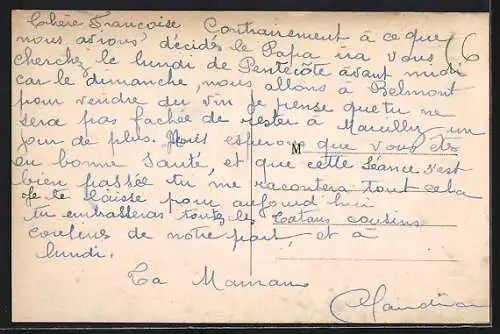 Chère Francoise Contrairement à ce que
nous avions décidés le Papa ira vous
cherchez le lundi de Pentecôte avant midi
car le dimanche, nous allons à Belmont
pour vendre du vin je pense que tu ne
sera pas fachée de rester à Marcilly un
jour de plus. Nous esperons que vous êts
M
en bonne santé, et que cette séance s'est
bien passée tu me racontera tout cela
Je te laisse pour aujourd'hui
tu embrasseras toutes les Tatans cousins
cousines de notre part, et à
lundi.
Ta Maman